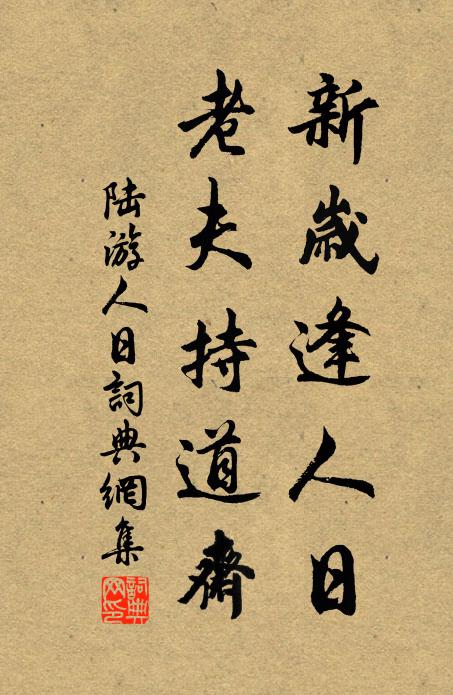 新歲逢人日
老夫持道齋
陸游人日詞典網集
詞典网印